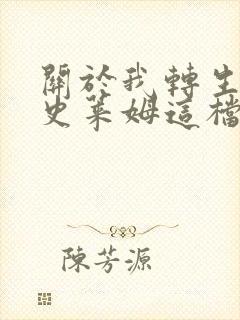 關於我轉生
史萊姆這檔
陳芳源